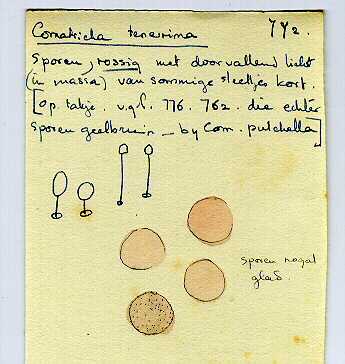 Comatricha tenerrima 772.
Sporen, rossig met doorvallend licht
(in massa) van sommige steeltjes kort.
[op takje. v.gl. 776. 762. die echter
sporen geelbruin - by Com. pulchella]
sporen nogal
glad.